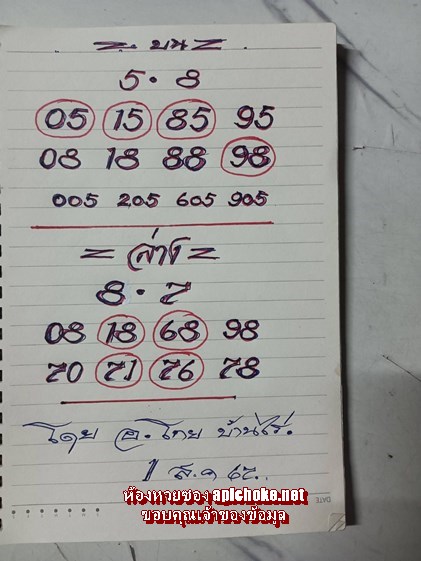 = บน =
5 · 8
05 15 85 95
08 18 88 98
005 205 605 905
= ล่าง =
8 · 7
08 18 68 98
70 71 76 78
โดย อ. โกย บ้านไร่.
1 ส.ค 67.
ห้องหวยซอง apichoke.net
ขอบคุณเจ้าของข้อมูล
DATE